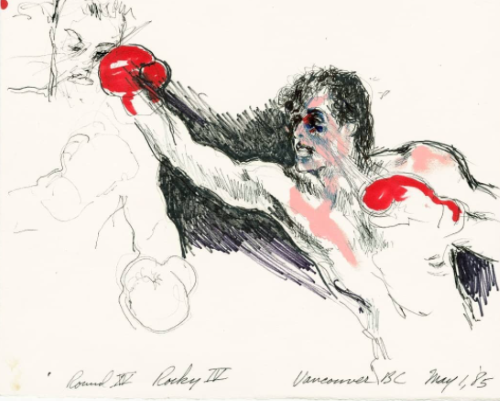 Round IV Rocky IV Vancouver BC May 1, '85